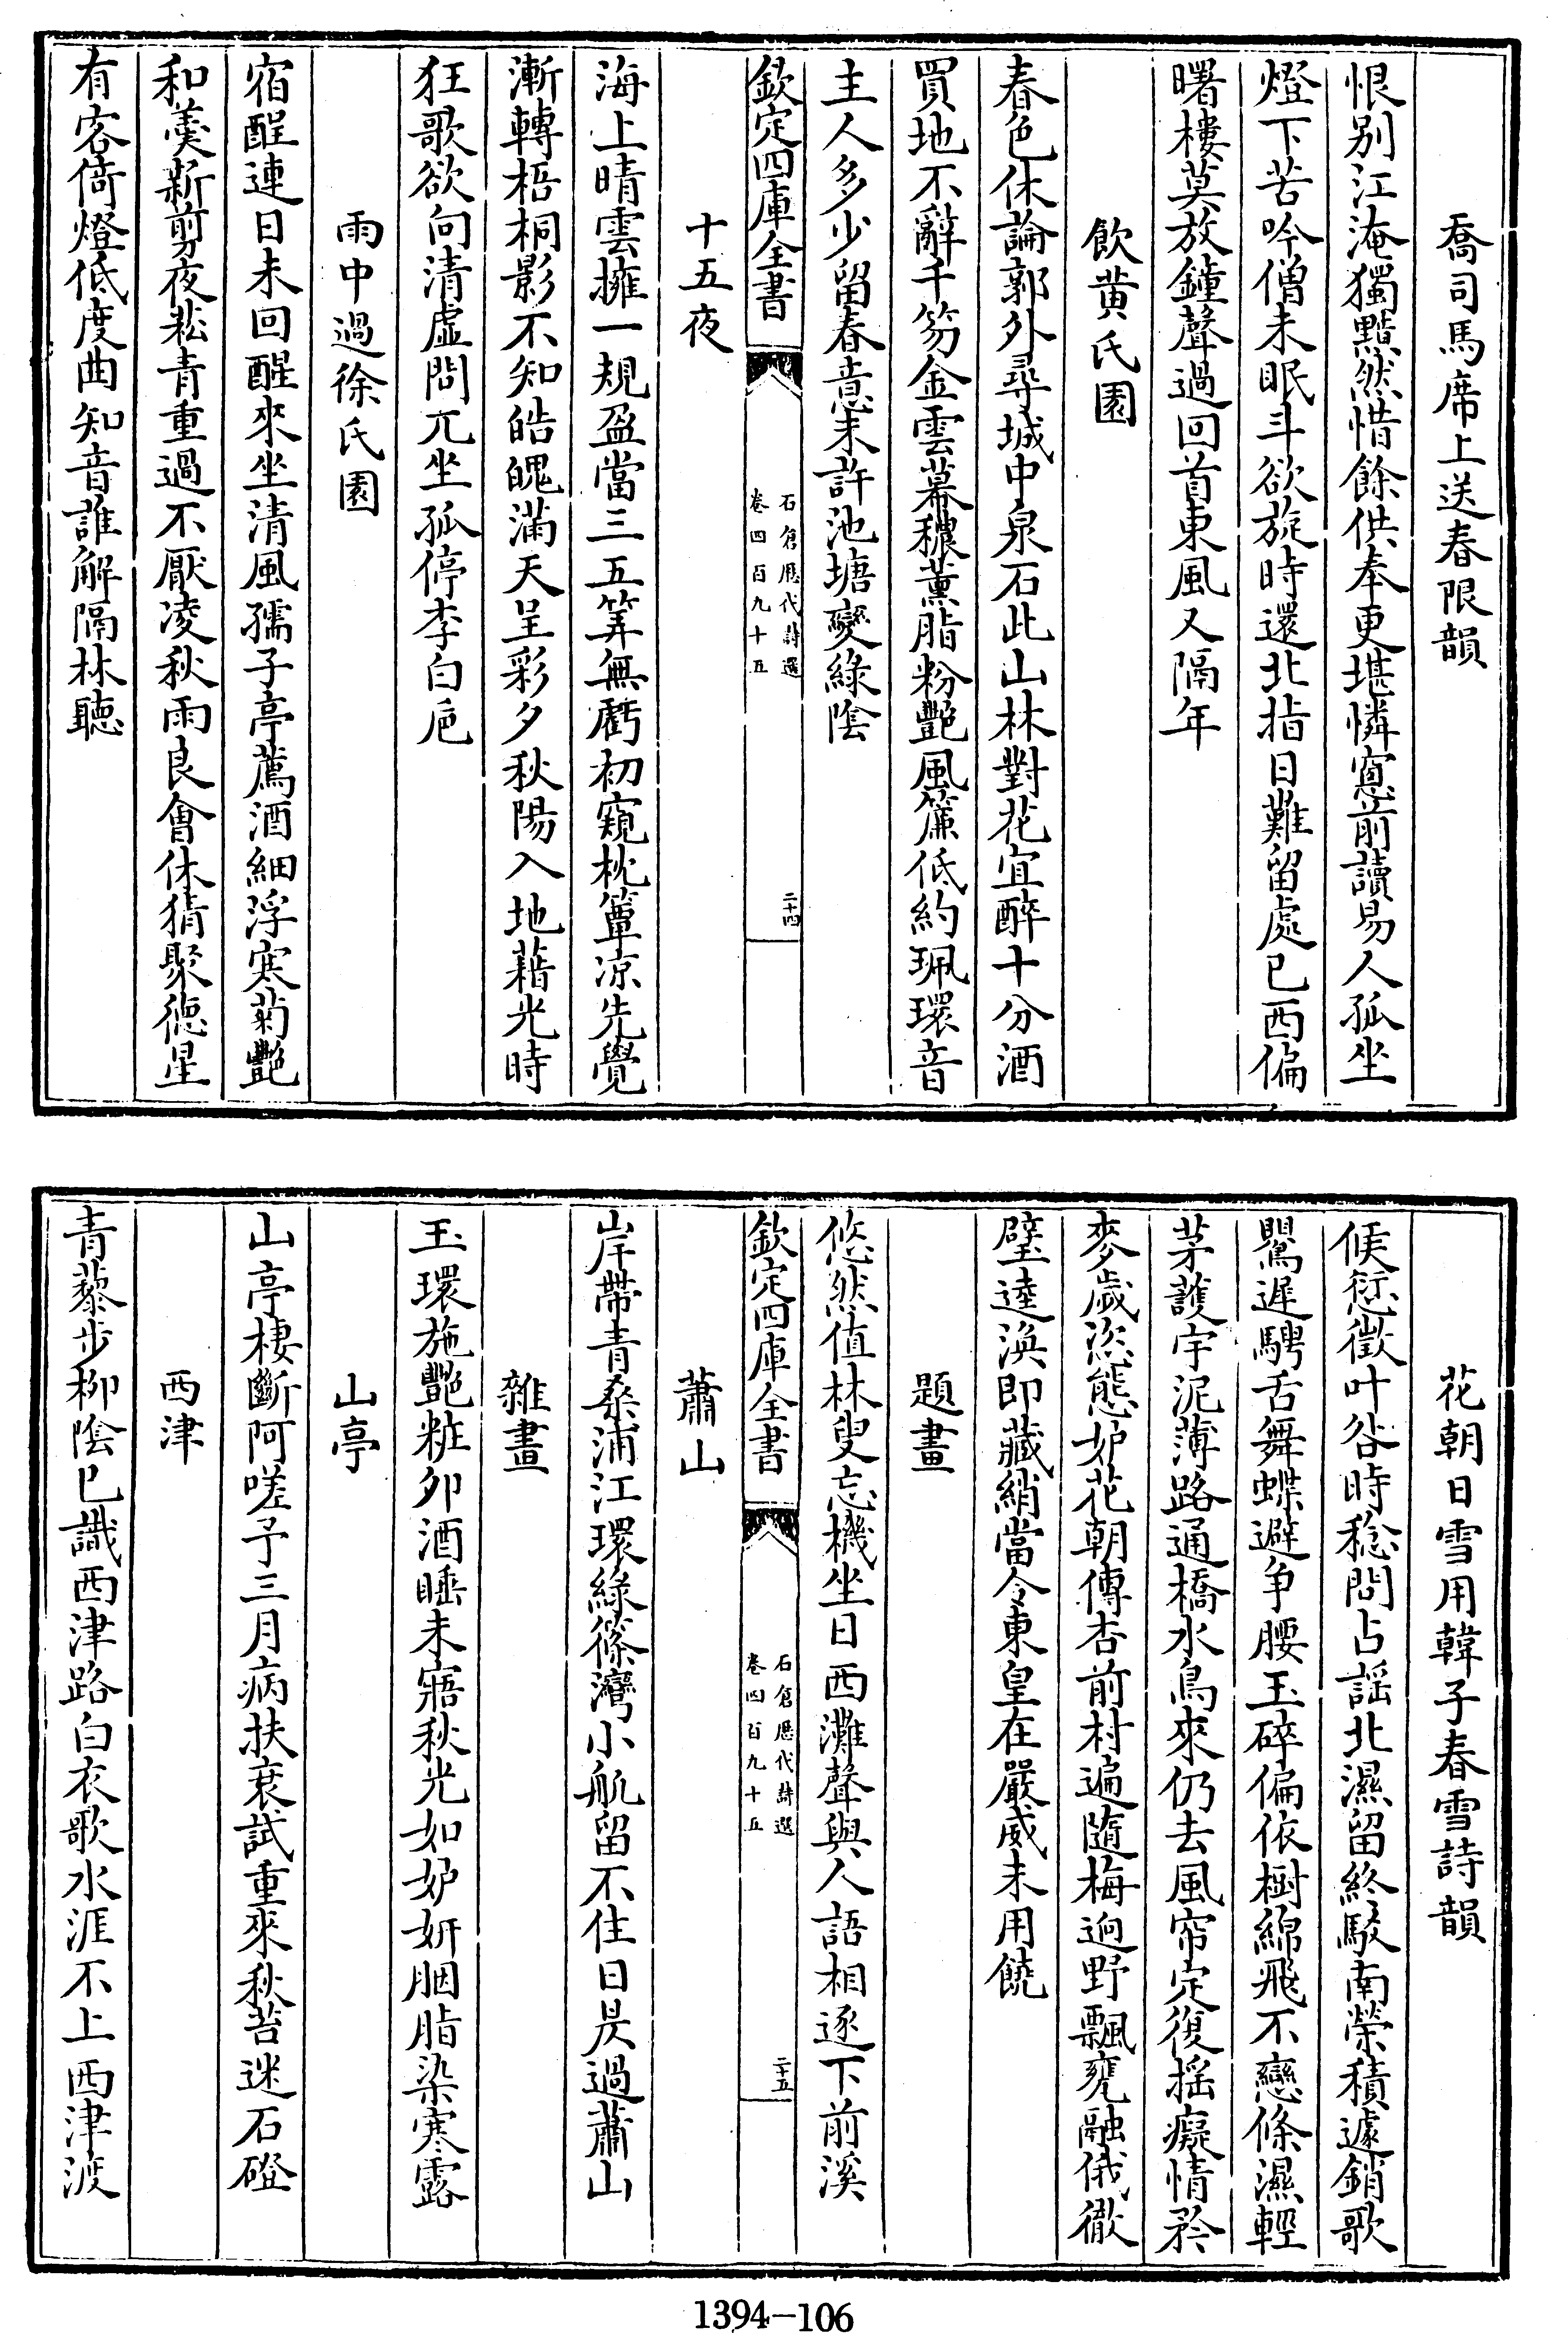 喬司馬席上送春限韻
恨别江淹獨黯然惜餘供奉更堪憐窻前讀易人孤坐
燈下苦吟僧未眠斗欲旋時還北指日難留處已西偏
曙樓莫放鐘聲過回首東風又隔年
飲黄氏園
春色休論郭外尋城中泉石此山林對花宜醉十分酒
買地不辭千笏金雲幕穠薰脂粉艶風簾低約珮環音
主人多少留春意未許池塘變綠隂
欽定四庫全書
石倉歷代詩選
卷四百九十五
二十四
十五夜
海上晴雲擁一規盈當三五筭無虧初窺枕簟凉先覺
漸轉梧桐影不知皓魄滿天呈彩夕秋陽入地藉光時
狂歌欲向清虚問兀坐孤停李白巵
雨中過徐氏園
宿酲連日未回醒來坐清風孺子亭薦酒細浮寒菊艶
和羮新剪夜菘青重過不厭凌秋雨良會休猜聚徳星
有客倚燈低度曲知音誰解隔林聽
花朝日雪用韓子春雪詩韻
候愆徵叶咎時稔問占謡北濕留終駁南榮積遽銷歌
鸎遲騁舌舞蝶避争腰玉碎偏依樹綿飛不戀條濕輕
茅護宇泥薄路通橋水鳥來仍去風帘定復揺癡情矜
麥歲恣態妒花朝傳杏前村遍隨梅逈野飄甕融俄徹
璧逵渙即藏綃當令東皇在嚴威未用饒
題畫
悠然值林叟忘機坐日西灘聲與人語相逐下前溪
欽定四庫全書
石倉歷代詩選
卷四百九十五
二十五
蕭山
岸帶青桑浦江環綠篠灣小航留不住日昃過蕭山
雜畫
玉環施艶粧夘酒睡未寤秋光如妒妍胭脂染寒露
山亭
山亭棲斷阿嗟予三月病扶衰試重來秋苔迷石磴
西津
青藜步柳隂已識西津路白衣歌水涯不上西津渡
1394-106